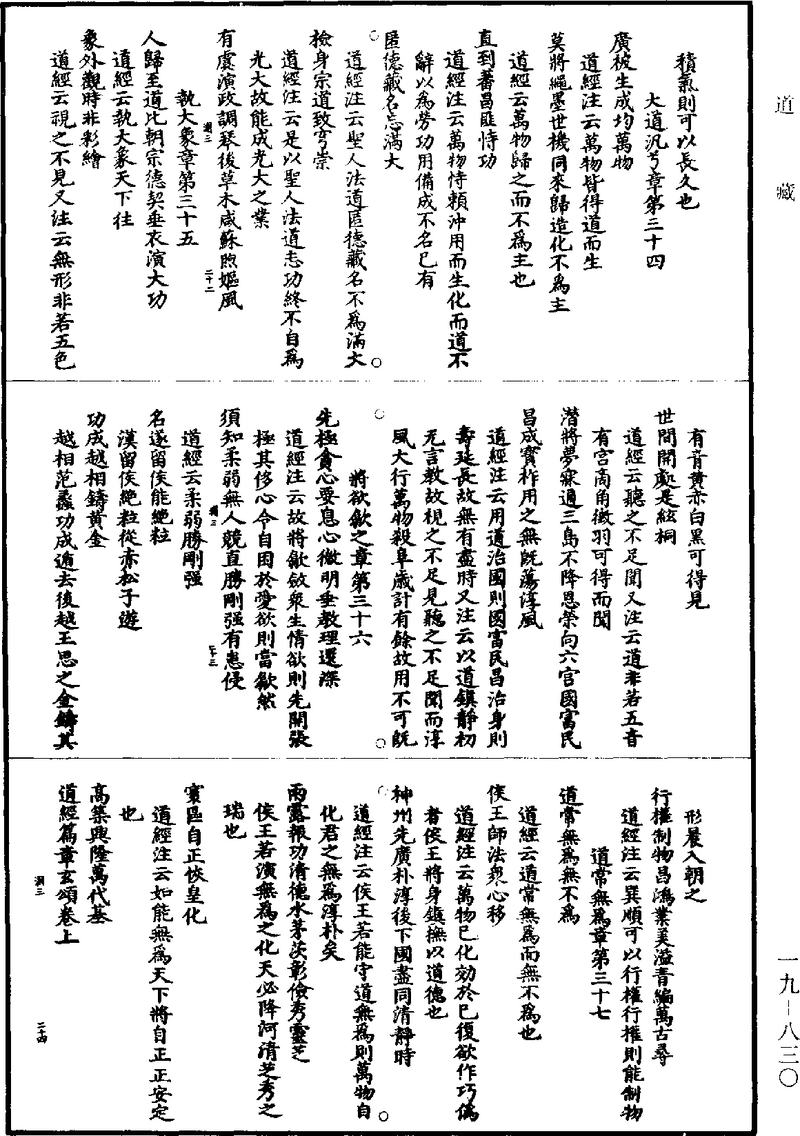 道藏
積氣則可以長久也
大道汎兮章第三十四
廣被生成均萬物
道經注云萬物皆得道而生
莫將繩墨世機同來歸造化不為主
道經云萬物歸之而不為主也
直到蕃昌匪恃功
道經注云萬物恃賴沖用而生化而道不
辭以為勞功用備成不名已有
匿德藏名忘滿大
道經注云聖人法道匿德藏名不為滿大
檢身宗道致穹崇
道經注云是以聖人法道志功終不自為
光大故能成光大之業
有虞演政調琴後草木咸蘇煦嫗風
洞三 二十二
執大象章第三十五
人歸至道比朝宗德契垂衣演大功
道經云執大象天下往
象外觀時非彩繪
道經云視之不見又注云無形非若五色
有音黃赤白黑可得見
世間開處是絃桐
道經云聽之不足聞又注云道非若五音
有宮商角徵羽可得而聞
潛將夢寐通三島不降恩榮向六宮國富民
昌成實祚用之無既蕩淳風
道經注云用道治國則國富民昌治身則
壽延長故無有盡時又注云以道鎮靜初
无言教故視之不足見聽之不足聞而淳
風大行萬物殺阜歲計有餘故用不可既
將欲歙之章第三十六
先極貪心要息心微明垂教理還深
道經注云故將歙斂衆生情欲則先開張
極其侈心令自困於愛欲則當歙然
須知柔弱無人競直勝剛强有患侵
洞三 二十三
道經云柔弱勝剛强
名遂留侯能絶粒
漢留侯絶粒從赤松子遊
功成越相鑄黃金
越相范蠡功成遁去後越王思之金鑄其
形晨入朝之
行權制物昌鴻業美溢青編萬古尋
道經注云巽順可以行權行權則能制物
道常無為章第三十七
道常無為無不為
道經云道常無為而無不為也
侯王師法衆心移
道經注云萬物已化効於已復欲作巧偽
者侯王將身鎮撫以道德也
神州先廣朴淳後下國盡同清靜時
道經注云侯王若能守道無為則萬物自
化君之無為淳朴矣
雨露報功清德水茅茨彰儉秀靈芝
侯王若演無為之化天必降河清芝秀之
瑞也
寰區自正恢皇化
道經注云如能無為天下將自正正安定
也
高築興隆萬代基
道經篇章玄頌卷上
洞三 二十四
一九-八三〇